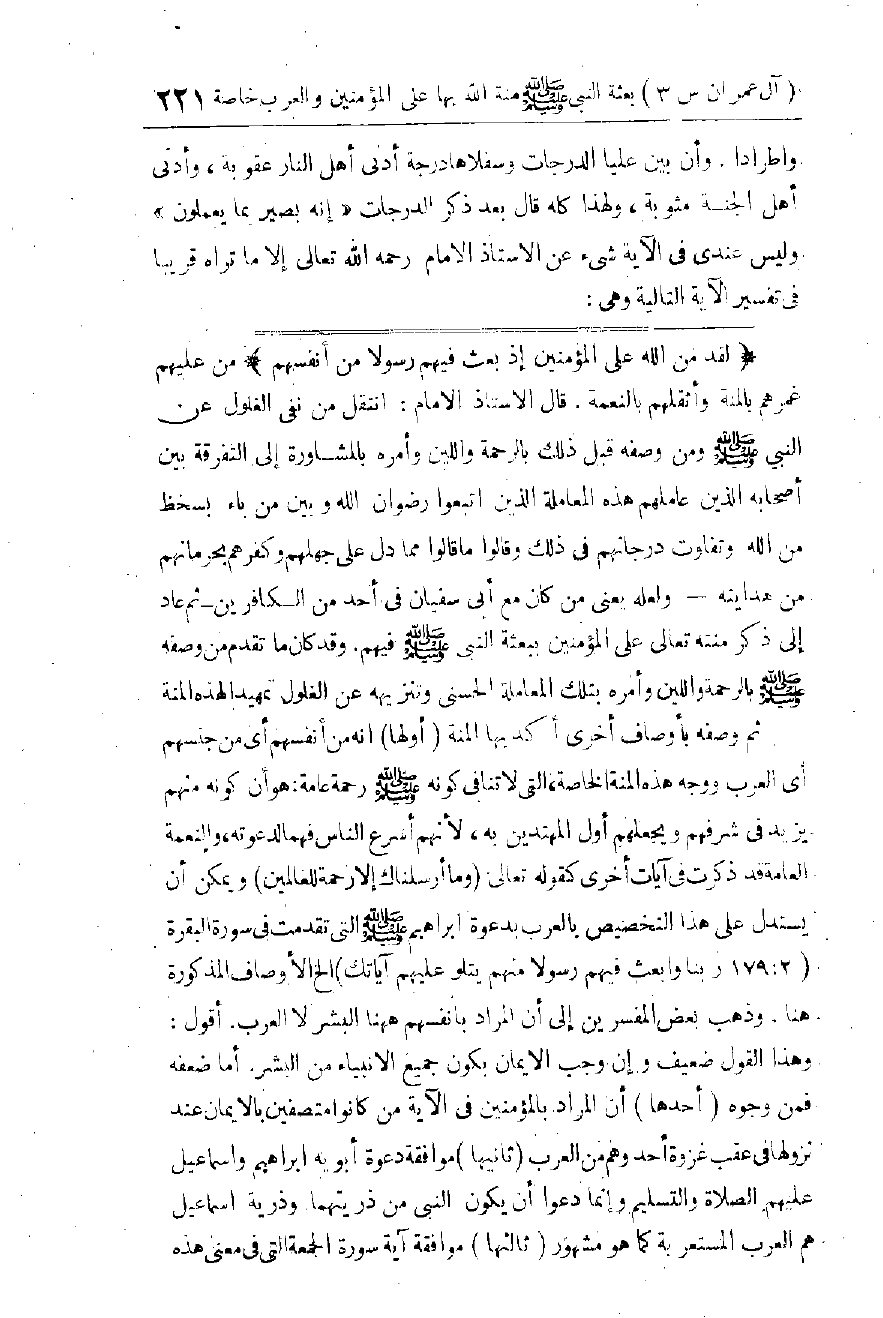 ( آل عمران س ٣ ) بعثة النبي ﷺ منة الله بها على المؤمنين والعرب خاصة ٢٢١
واطرادا . وأن بين عليا الدرجات وسفلاها درجة أدنى أهل النار عقوبة ، وأدنى
أهل الجنة مثوبة ، ولهذا كله قال بعد ذكر الدرجات « إنه بصير بما يعملون »
وليس عندى فى الآية شىء عن الاستاذ الامام رحمه الله تعالى إلا ما تراه قريبا
فى تفسير الآية التالية وهى :
﴿ لقد من الله على المؤمنين إذ بعث فيهم رسولا من أنفسهم ﴾ من عليهم
غمرهم بالمنة وأثقلهم بالنعمة . قال الاستاذ الامام : انتقل من نفى الغلول عن
النبي ﷺ ومن وصفه قبل ذلك بالرحمة واللين وأمره بالمشاورة إلى التفرقة بين
أصحابه الذين عاملهم هذه المعاملة الذين اتبعوا رضوان الله وبين من باء بسخظ
من الله وتفاوت درجاتهم فى ذلك وقالوا ماقالوا مما دل على جهلهم وكفرهم بحرمانهم
من هدايته — ولعله يعنى من كان مع أبى سفيان فى أحد من الكافرين — ثم عاد
إلى ذكر منته تعالى على المؤمنين ببعثة النبى ﷺ فيهم. وقد كان ما تقدم من وصفه
ﷺ بالرحمة واللين وأمره بتلك المعاملة الحسنى وتنزيهه عن الغلول تمهيدا لهذه المنة
ثم وصفه بأوصاف أخرى أكد بها المنة ( أولها) انه من أنفسهم أى من جنسهم
أى العرب ووجه هذه المنة الخاصة، التى لا تنافى كونه ﷺ رحمة عامة: هو أن كونه منهم
يزيد فى شرفهم ويجعلهم أول المهتدين به ، لأنهم أسرع الناس فهما لدعوته، والنعمة
العامة قد ذكرت فى آيات أخرى كقوله تعالى: (وما أرسلناك إلا رحمة للعالمين) ويمكن أن
يستدل على هذا التخصيص بالعرب بدعوة ابراهيم ﷺ التى تقدمت فى سورة البقرة
( ٢ : ١٧٩ ربنا وابعث فيهم رسولا منهم يتلو عليهم آياتك) الخ الأوصاف المذكورة
هنا . وذهب بعض المفسرين إلى أن المراد بأنفسهم ههنا البشر لا العرب. أقول :
وهذا القول ضعيف وإن وجب الايمان بكون جميع الانبياء من البشر. أما ضعفه
فمن وجوه ( أحدها ) أن المراد بالمؤمنين فى الآية من كانوا متصفين بالايمان عند
نزولها فى عقب غزوة أحد وهم من العرب (ثانيها ) موافقة دعوة أبويه ابراهيم واسماعيل
عليهم الصلاة والتسليم وإنما دعوا أن يكون النبى من ذريتهما وذرية اسماعيل
هم العرب المستعربة كما هو مشهور ( ثالثها ) موافقة آية سورة الجمعة التى فى معنى هذه